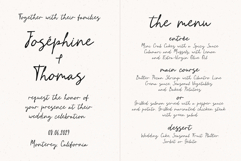 Together with their families
Joséphine
+
Thomas
request the honor of
your presence at their
wedding celebration
09.06.2027
Monterey, California
the menu
entrée
Mini Crab Cakes with a Spicy Sauce
Calamari and Mussels with Lemon
and Extra-Virgin Olive Oil
main course
Butter Prawn Shrimp with
Seasonal Vegetables,
and Baked Potatoes
or
Grilled sirloin served with a pepper sauce
and potato. Grilled marinated chicken steak
with green salad.
dessert
Wedding Cake, Seasonal Fruit Platter
Sorbet or Gelato